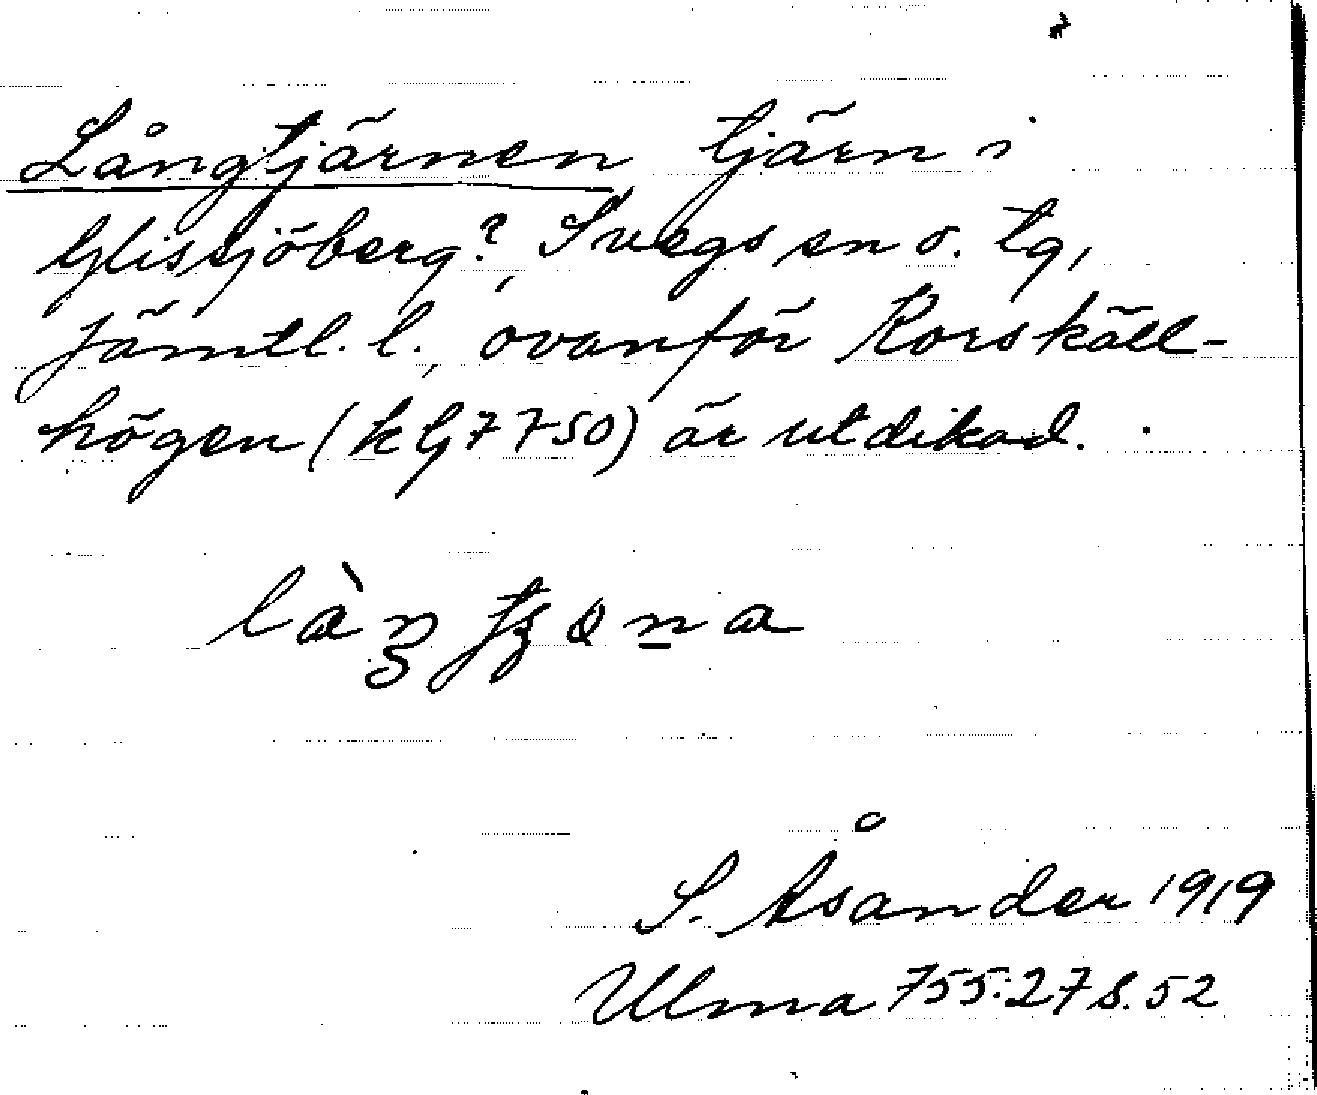 Långtjärnen, tjärn i
Glissjöberg?, Svegs sn o. tg,
Jämtl. l., ovanför Korskäll-
högen (k G 7750) är utdikad.
S. Åsander 1919
Ulma 755:27 S. 52